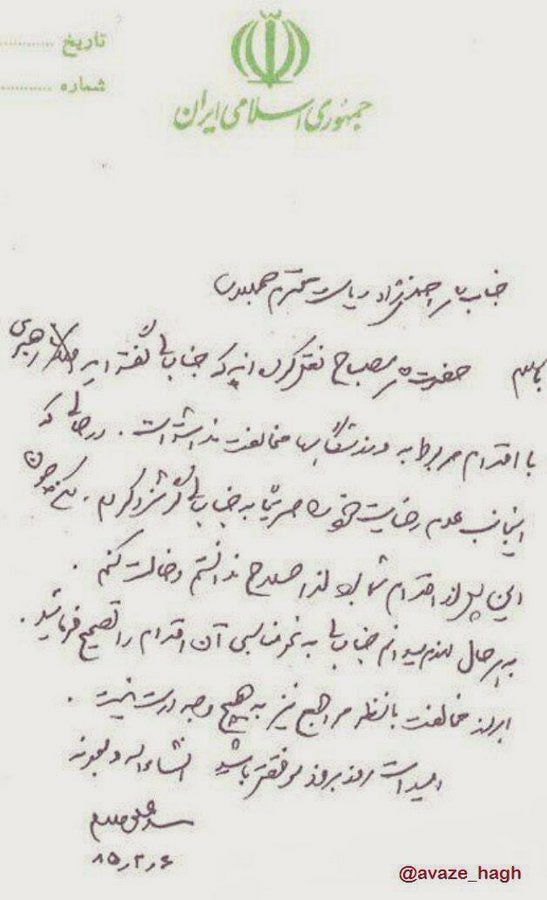 تاریخ ............
شماره ............
جمهوری اسلامی ایران
جناب آقای احمدی نژاد ریاست محترم جمهوری
با سلام حضرت آقای مصباح نقل کردند که جنابعالی گفته اید رهبری
با اقدام مربوط به ورزشگاهها مخالفت نداشته است. در حالی که
اینجانب عدم رضایت خود را صریحا به جنابعالی گوشزد کردم. لکن چون
این پس از اقدام شما بود لذا صلاح ندانستم دخالت کنم.
به هر حال لازم میدانم جنابعالی به نحو مناسبی آن اقدام را تصحیح فرمائید.
ابراز مخالفت با نظر مراجع نیز به هیچ وجه درست نیست.
امید است روز بروز موفقتر باشید انشاءاله و بعونه
سید علی
۸۵ر۲ر۶
@avaze_hagh